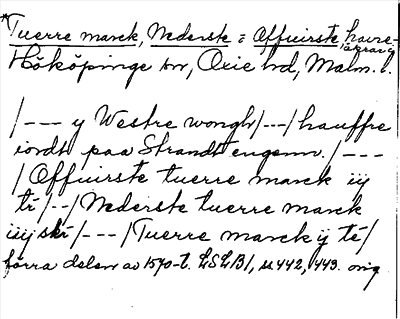 *Tuerre marck, Nederste = Offuirste, havre-
åkrar i
Hököpinge sn, Oxie hd, Malm. l.
/--- y Westre wongh/---/hauffre
iordt paa Strandt engenn. /---
/Offuirste tuerre marck iij
tř/--/Nederste tuerre marck
iiij skř/---/Tuerre marck ij tř/
förra delen av 1570-t. LSLB1, ss 442, 443. orig